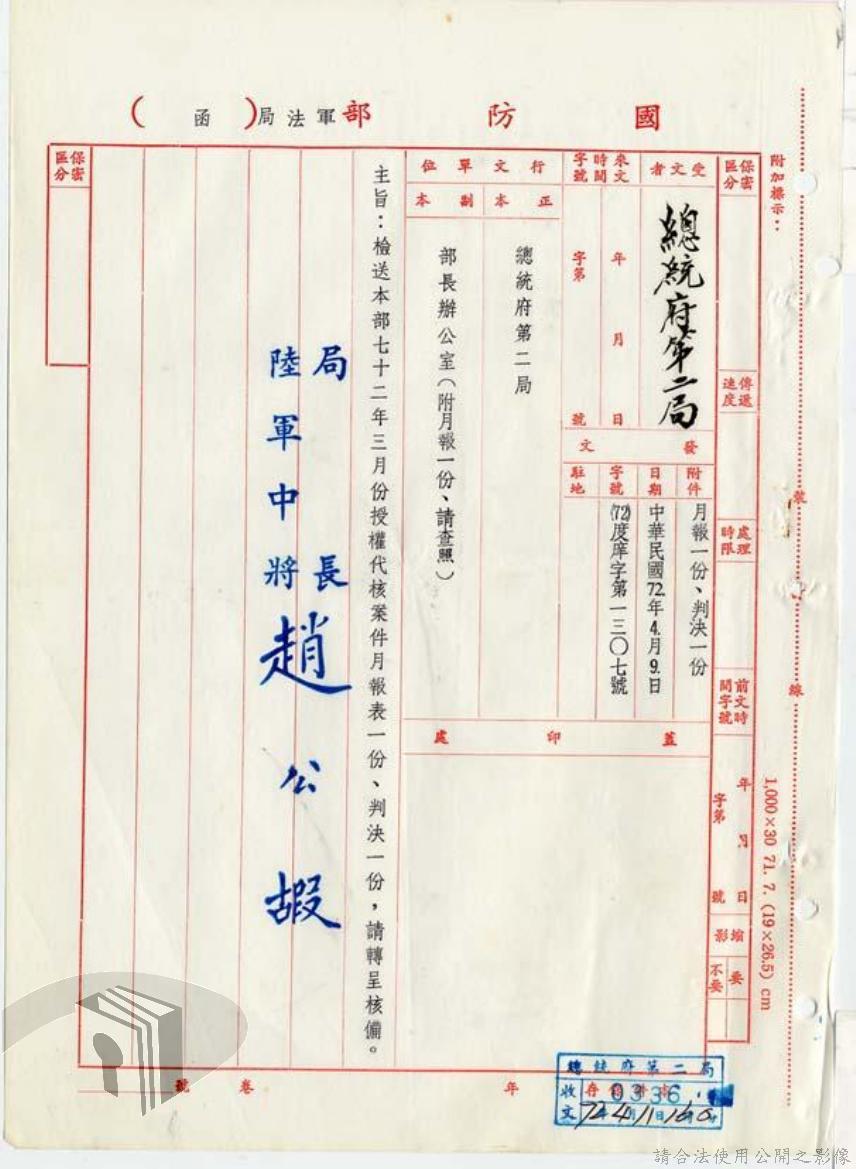 國防部軍法局(函)
附加標示：
保密區分
傳遞速度
處理時限
前文時間字號
年月日
字第號
縮影
要
不要
受文者
總統府第二局
來文時間字號
年月日
字第號
發文
附件
月報一份、判決一份
日期
中華民國72.年4.月9.日
字號
(72)度庠字第一三〇七號
駐地
行文單位
正本
總統府第二局
副本
部長辦公室(附月報一份、請查照)
蓋印處
主旨：檢送本部七十二年三月份授權代核案件月報表一份、判決一份，請轉呈核備。
局長
陸軍中將趙公嘏
保密區分
裝
線
1,000×30 71. 7. (19×26.5) cm
年
卷
號
總統府第二局
收文
0336
72年4月11日16時
請合法使用公開之影像